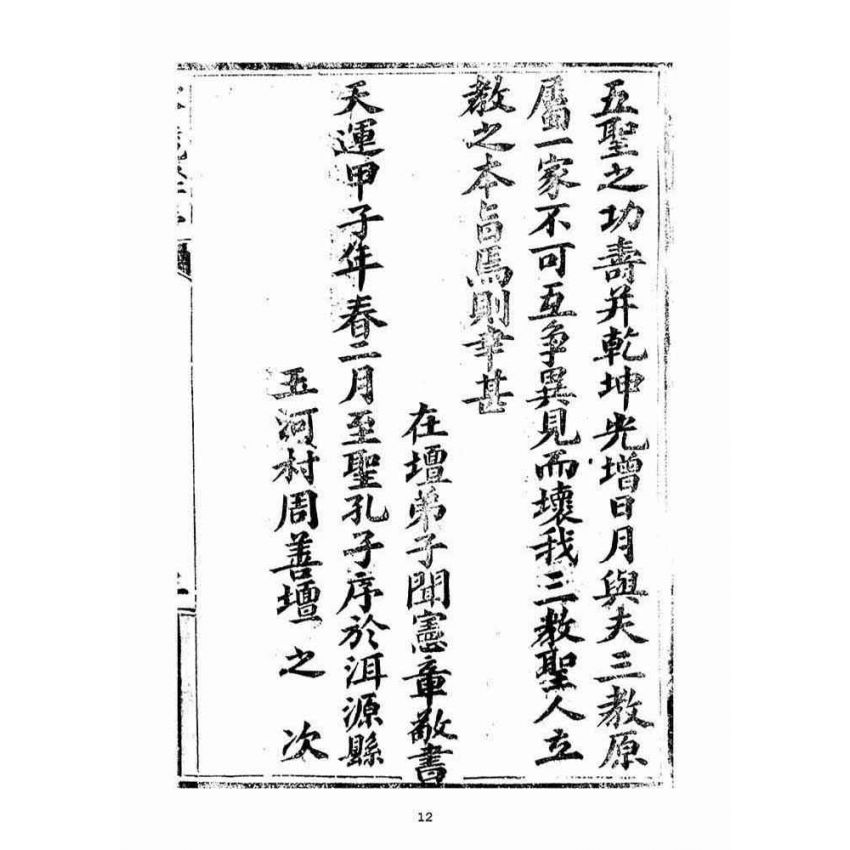 五聖之功壽并乾坤光增日月與夫三教原
屬一家不可互争異見而壞我三教聖人立
教之本旨焉則幸甚
在壇弟子聞憲章敬書
天運甲子年春二月至聖孔子序於洱源縣
五河村周善壇之次
12